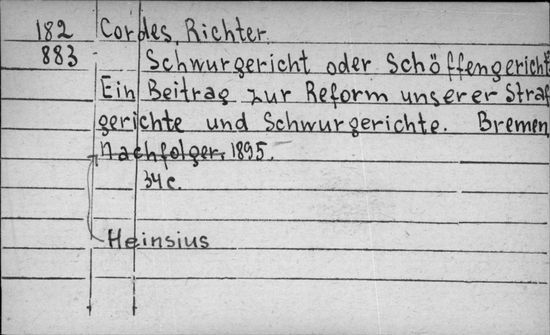 182 Cordes, Richter.
883 Schwurgericht oder Schöffengericht?
Ein Beitrag zur Reform unserer Straf
gerichte und Schwurgerichte. Bremen,
Nachfolger, 1895.
34 c.
Heinsius